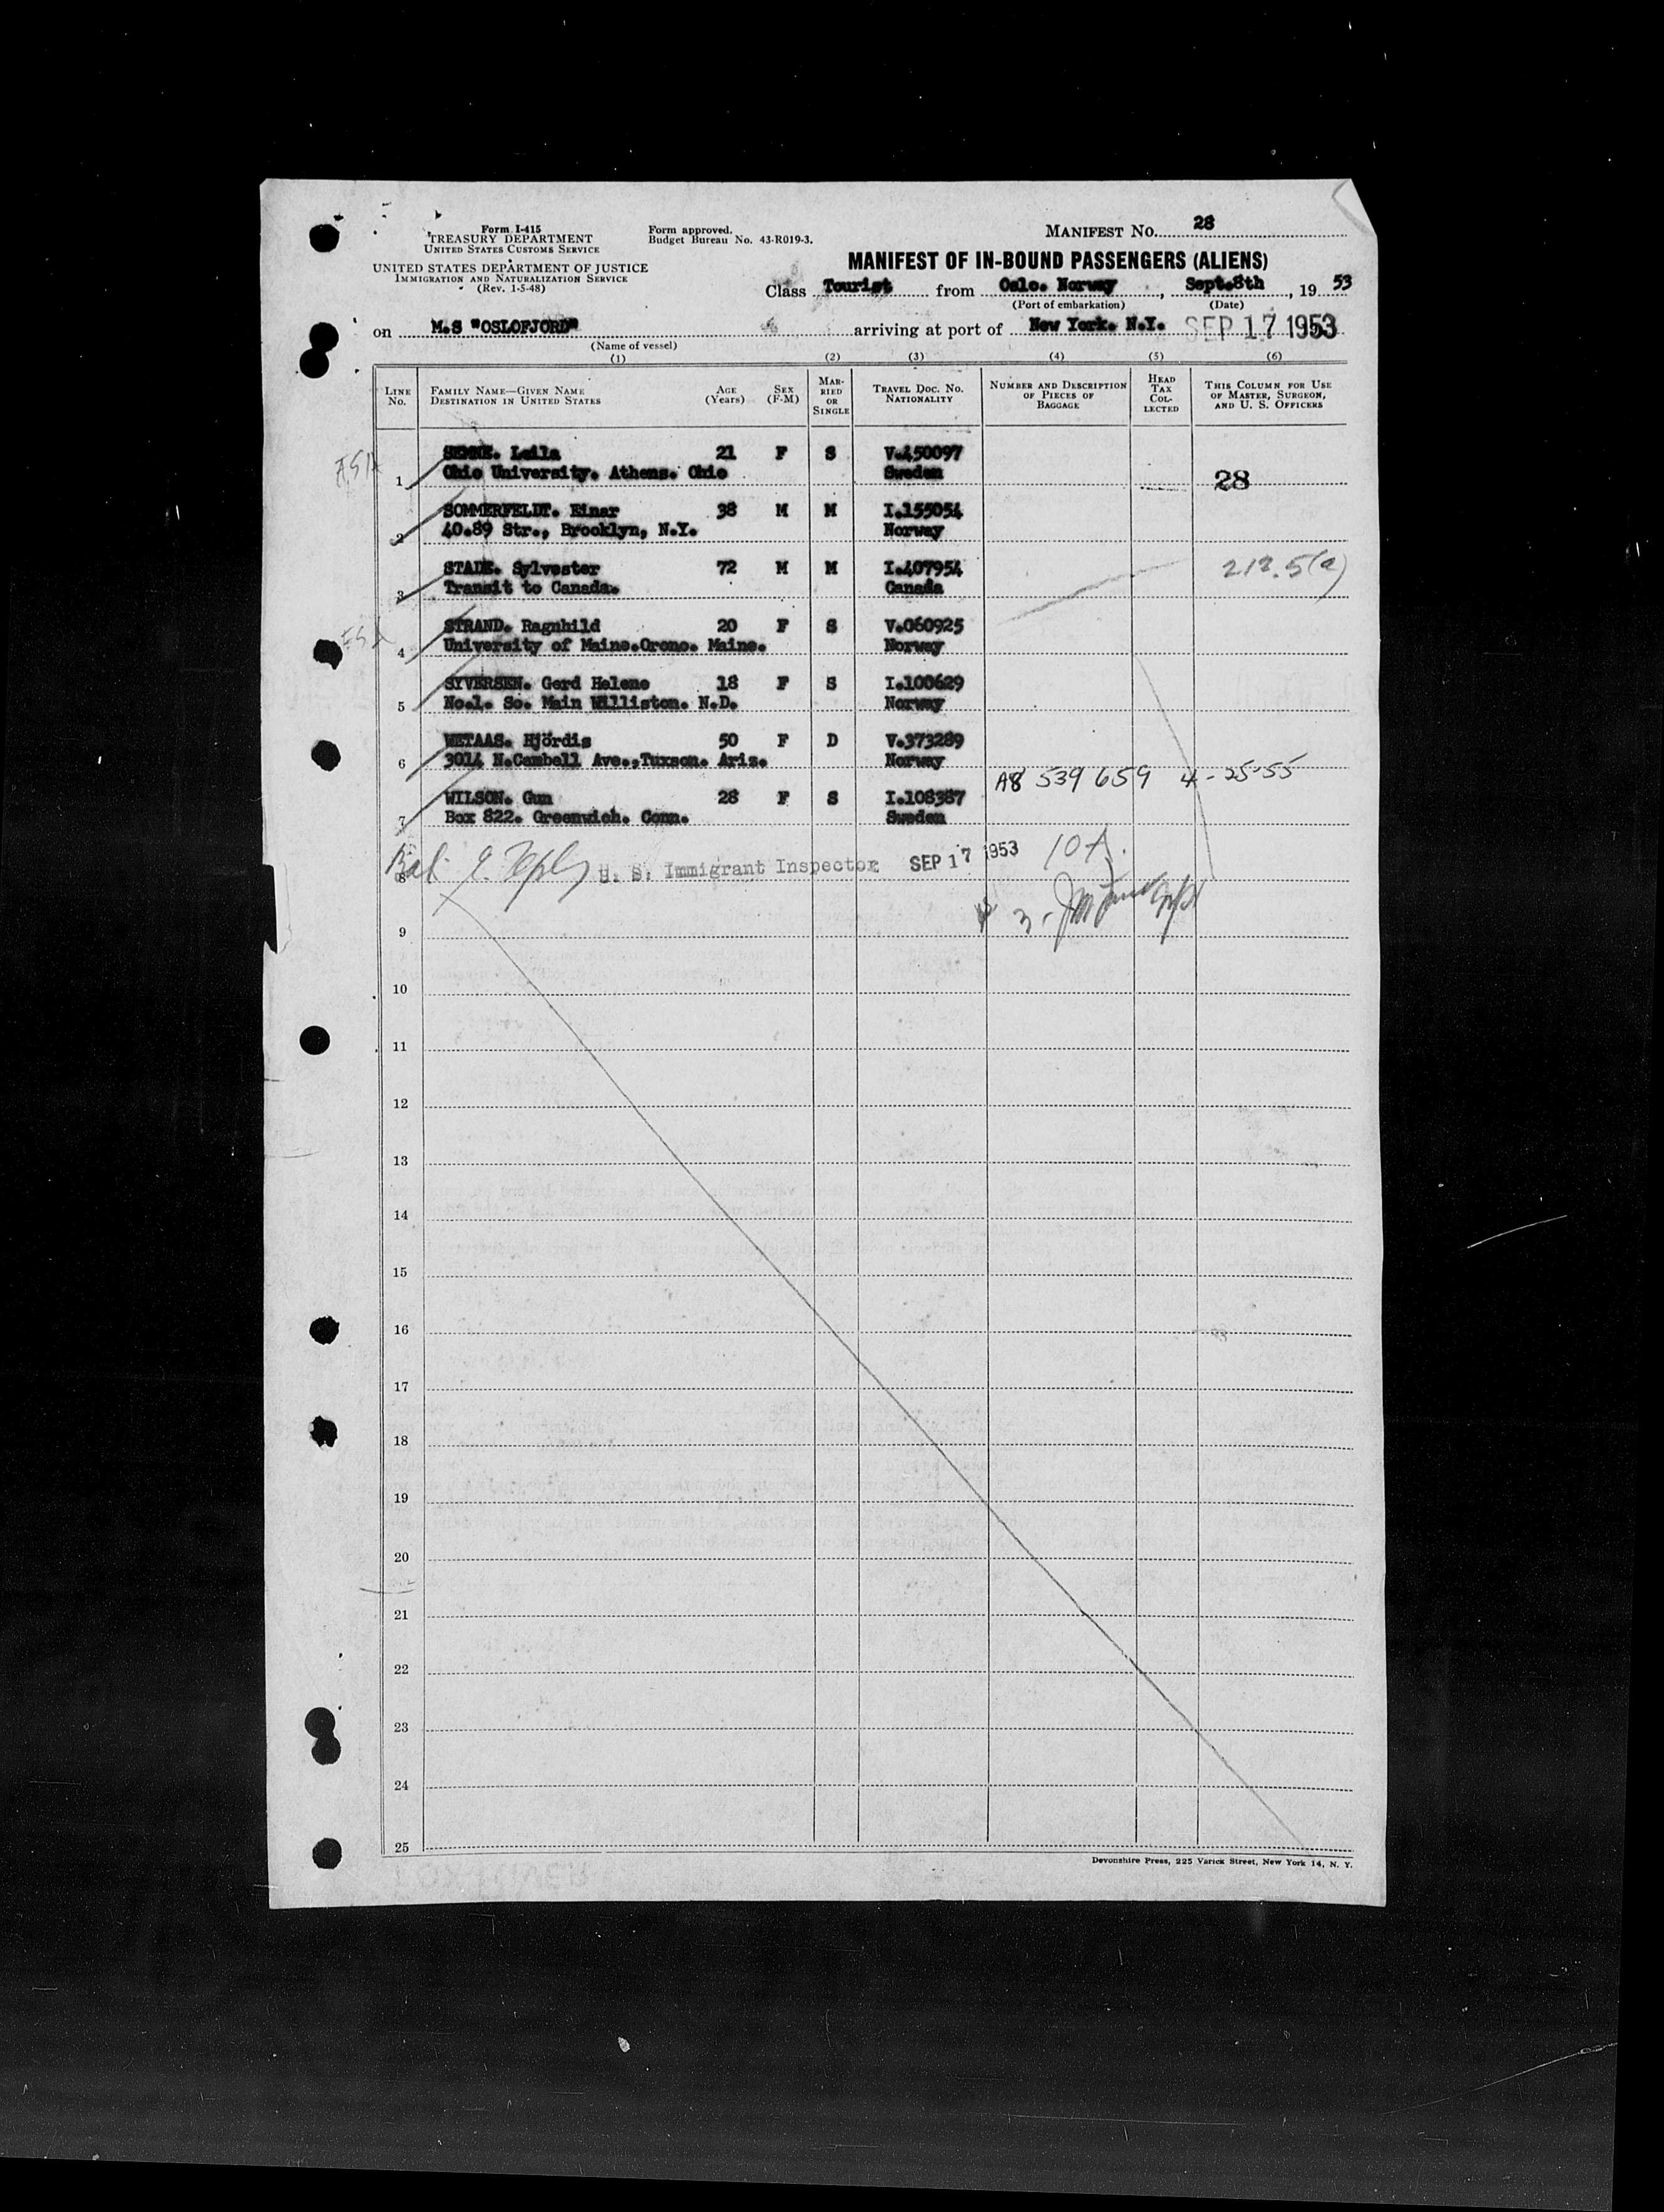 Form I-415
TREASURY DEPARTMENT
UNITED STATES CUSTOMS SERVICE
UNITED STATES DEPARTMENT OF JUSTICE
IMMIGRATION AND NATURALIZATION SERVICE
(Rev. 1-5-48)
Form approved.
Budget Bureau No. 43-R019-3.
MANIFEST No. 28
MANIFEST OF IN-BOUND PASSENGERS (ALIENS)
Class Tourist from Oslo. Norway, Sept.8th, 19 53
(Port of embarkation) (Date)
on M.S "OSLOFJORD" arriving at port of New York. N.Y. SEP 17 1953
(Name of vessel)
(1) (2) (3) (4) (5) (6)
LINE No. FAMILY NAME—GIVEN NAME DESTINATION IN UNITED STATES AGE (Years) SEX (F-M) MARRIED OR SINGLE TRAVEL DOC. NO. NATIONALITY NUMBER AND DESCRIPTION OF PIECES OF BAGGAGE HEAD TAX COLLECTED THIS COLUMN FOR USE OF MASTER, SURGEON, AND U. S. OFFICERS
Leila 21 F S V.450097
1 Ohio University. Athens. Ohio Sweden 28
SOMMERFELDT. Einar 38 M M I.155054
2 40.89 Str., Brooklyn, N.Y. Norway
STADE. Sylvester 72 M M I.407954 212.5(a)
3 Transit to Canada. Canada
STRAND. Ragnhild 20 F S V.060925
4 University of Maine.Orono. Maine. Norway
SYVERSEN. Gerd Helene 18 F S I.100629
5 No.1. So. Main Williston. N.D. Norway
WETAAS. Hjördis 50 F D V.373289
6 3014 N.Cambell Ave.,Tuxson. Ariz. Norway
A8 539 659 4-25-55
WILSON. Gun 28 F S I.108387
7 Box 822. Greenwich. Conn. Sweden
8 U. S. Immigrant Inspector SEP 17 1953
9
10
11
12
13
14
15
16
17
18
19
20
21
22
23
24
25
Devonshire Press, 225 Varick Street, New York 14, N. Y.